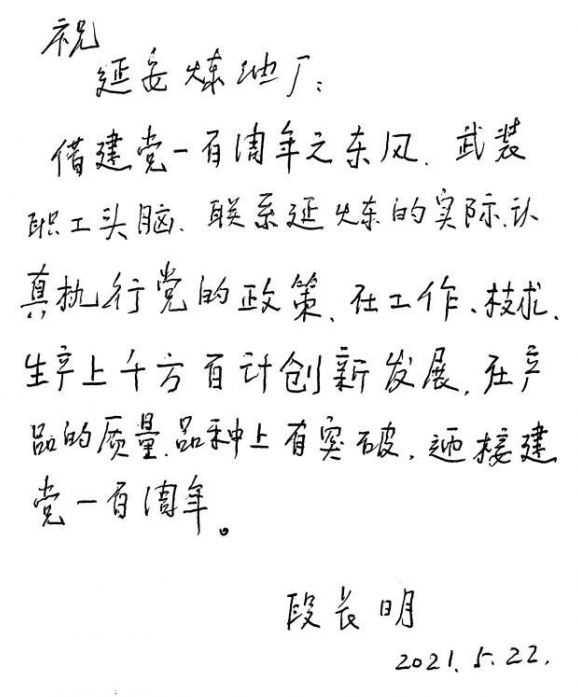 祝
延安炼油厂:
借建党一百周年之东风、武装
职工头脑、联系延炼的实际、认
真执行党的政策、在工作、技术、
生产上千方百计创新发展,在产
品的质量、品种上有突破,迎接建
党一百周年。
段长明
2021.5.22.